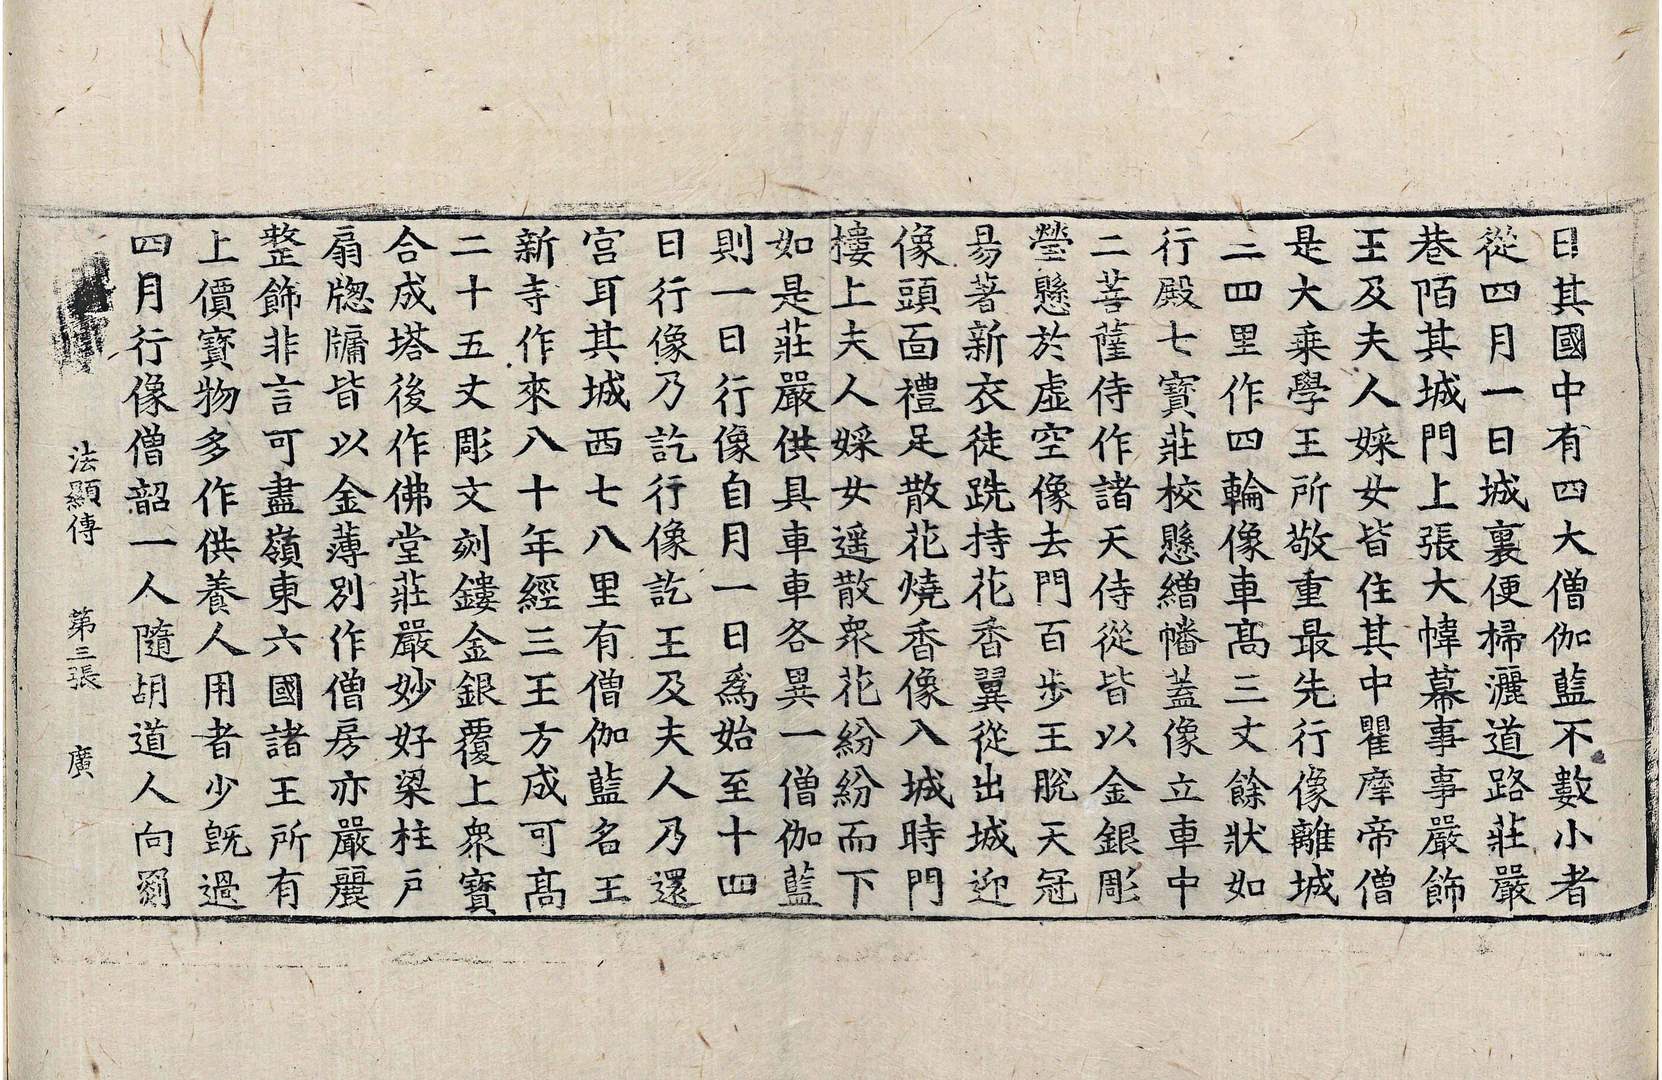 日其國中有四大僧伽藍不數小者
從四月一日城裏便掃灑道路莊嚴
巷陌其城門上張大幃幕事事嚴飾
王及夫人婇女皆住其中瞿摩帝僧
是大乘學王所敬重最先行像離城
三四里作四輪像車高三丈餘狀如
行殿七寶莊校懸繒幡蓋像立車中
二菩薩侍作諸天侍從皆以金銀彫
瑩懸於虛空像去門百步王脫天冠
易著新衣徒跣持花香翼從出城迎
像頭面禮足散花燒香像入城時門
樓上夫人婇女遥散眾花紛紛而下
如是莊嚴供具車車各異一僧伽藍
則一日行像自月一日爲始至十四
日行像乃訖行像訖王及夫人乃還
宮耳其城西七八里有僧伽藍名王
新寺作來八十年經三王方成可高
二十五丈彫文刻鏤金銀覆上眾寶
合成塔後作佛堂莊嚴妙好梁柱戶
扇牎牖皆以金薄別作僧房亦嚴麗
整飾非言可盡嶺東六國諸王所有
上價寶物多作供養人用者少旣過
四月行像僧韶一人隨胡道人向罽
法顯傳 第三張 廣